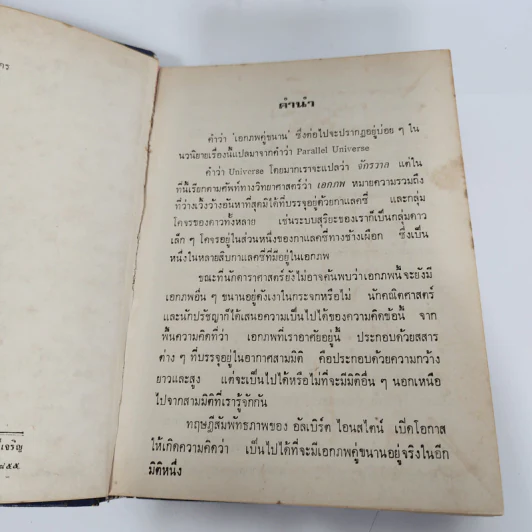 คร
เจริญ
๘๕๕
คำนำ
คำว่า 'เอกภพคู่ขนาน' ซึ่งต่อไปจะปรากฏอยู่บ่อย ๆ ใน
นวนิยายเรื่องนี้แปลมาจากคำว่า Parallel Universe
คำว่า Universe โดยมากเราจะแปลว่า จักรวาล แต่ใน
ที่นี้เรียกตามศัพท์ทางวิทยาศาสตร์ว่า เอกภพ หมายความรวมถึง
ที่ว่างเวิ้งว้างอันหาที่สุดมิได้ที่บรรจุอยู่ด้วยกาแลคซี่ และกลุ่ม
โคจรของดาวทั้งหลาย เช่นระบบสุริยะของเราก็เป็นกลุ่มดาว
เล็ก ๆ โคจรอยู่ในส่วนหนึ่งของกาแลคซี่ทางช้างเผือก ซึ่งเป็น
หนึ่งในหลายสิบกาแลคซี่ที่มีอยู่ในเอกภพ
ขณะที่นักดาราศาสตร์ยังไม่อาจค้นพบว่าเอกภพนี้จะยังมี
เอกภพอื่น ๆ ขนานอยู่ดังเงาในกระจกหรือไม่ นักคณิตศาสตร์
และนักปรัชญาก็ได้เสนอความเป็นไปได้ของความคิดข้อนี้ จาก
พื้นความคิดที่ว่า เอกภพที่เราอาศัยอยู่นี้ ประกอบด้วยสสาร
ต่าง ๆ ที่บรรจุอยู่ในอากาศสามมิติ คือประกอบด้วยความกว้าง
ยาวและสูง แต่จะเป็นไปได้หรือไม่ที่จะมีมิติอื่น ๆ นอกเหนือ
ไปจากสามมิติที่เรารู้จักกัน
ทฤษฎีสัมพัทธภาพของ อัลเบิร์ต ไอนสไตน์ เปิดโอกาส
ให้เกิดความคิดว่า เป็นไปได้ที่จะมีเอกภพคู่ขนานอยู่จริงในอีก
มิติหนึ่ง